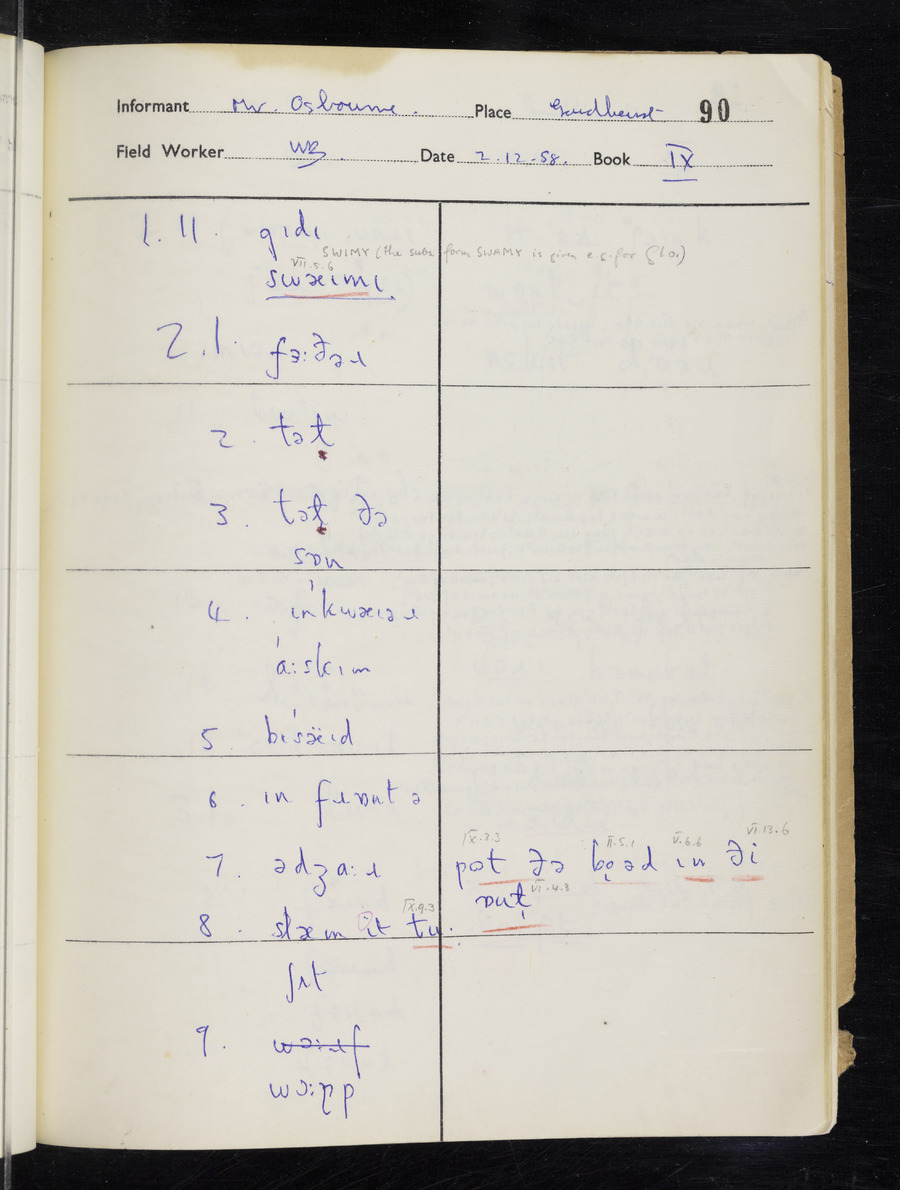 Informant Mr. Osbourne. Place Goudhurst 90
Field Worker WB. Date 2.12.58. Book IX
1.11. gɪdɪ
SWIMY (the subs. form SWAMY is given e.g. for
VII.5.6
swæimɪ
2.1. fɜ:ðəɹ
2. tət̩
3. tət̩ ðə
sɒn
4. ɪn'kwæɪəɹ
'a:skɪm
5. bɪ'sæ̈ɪd
6. ɪn fɹɒnt ə
7. ədʒa:ɹ
IX.2.3 II.5.1 V.6.6 VI.13.6
pʊt ðə bɛ̣əd ɪn ði
VI.4.3
ɒuṭ
8. slæm it tu.
IX.9.3
ʃɪt
9. wɔ:ɹf
wɔ:ɽp